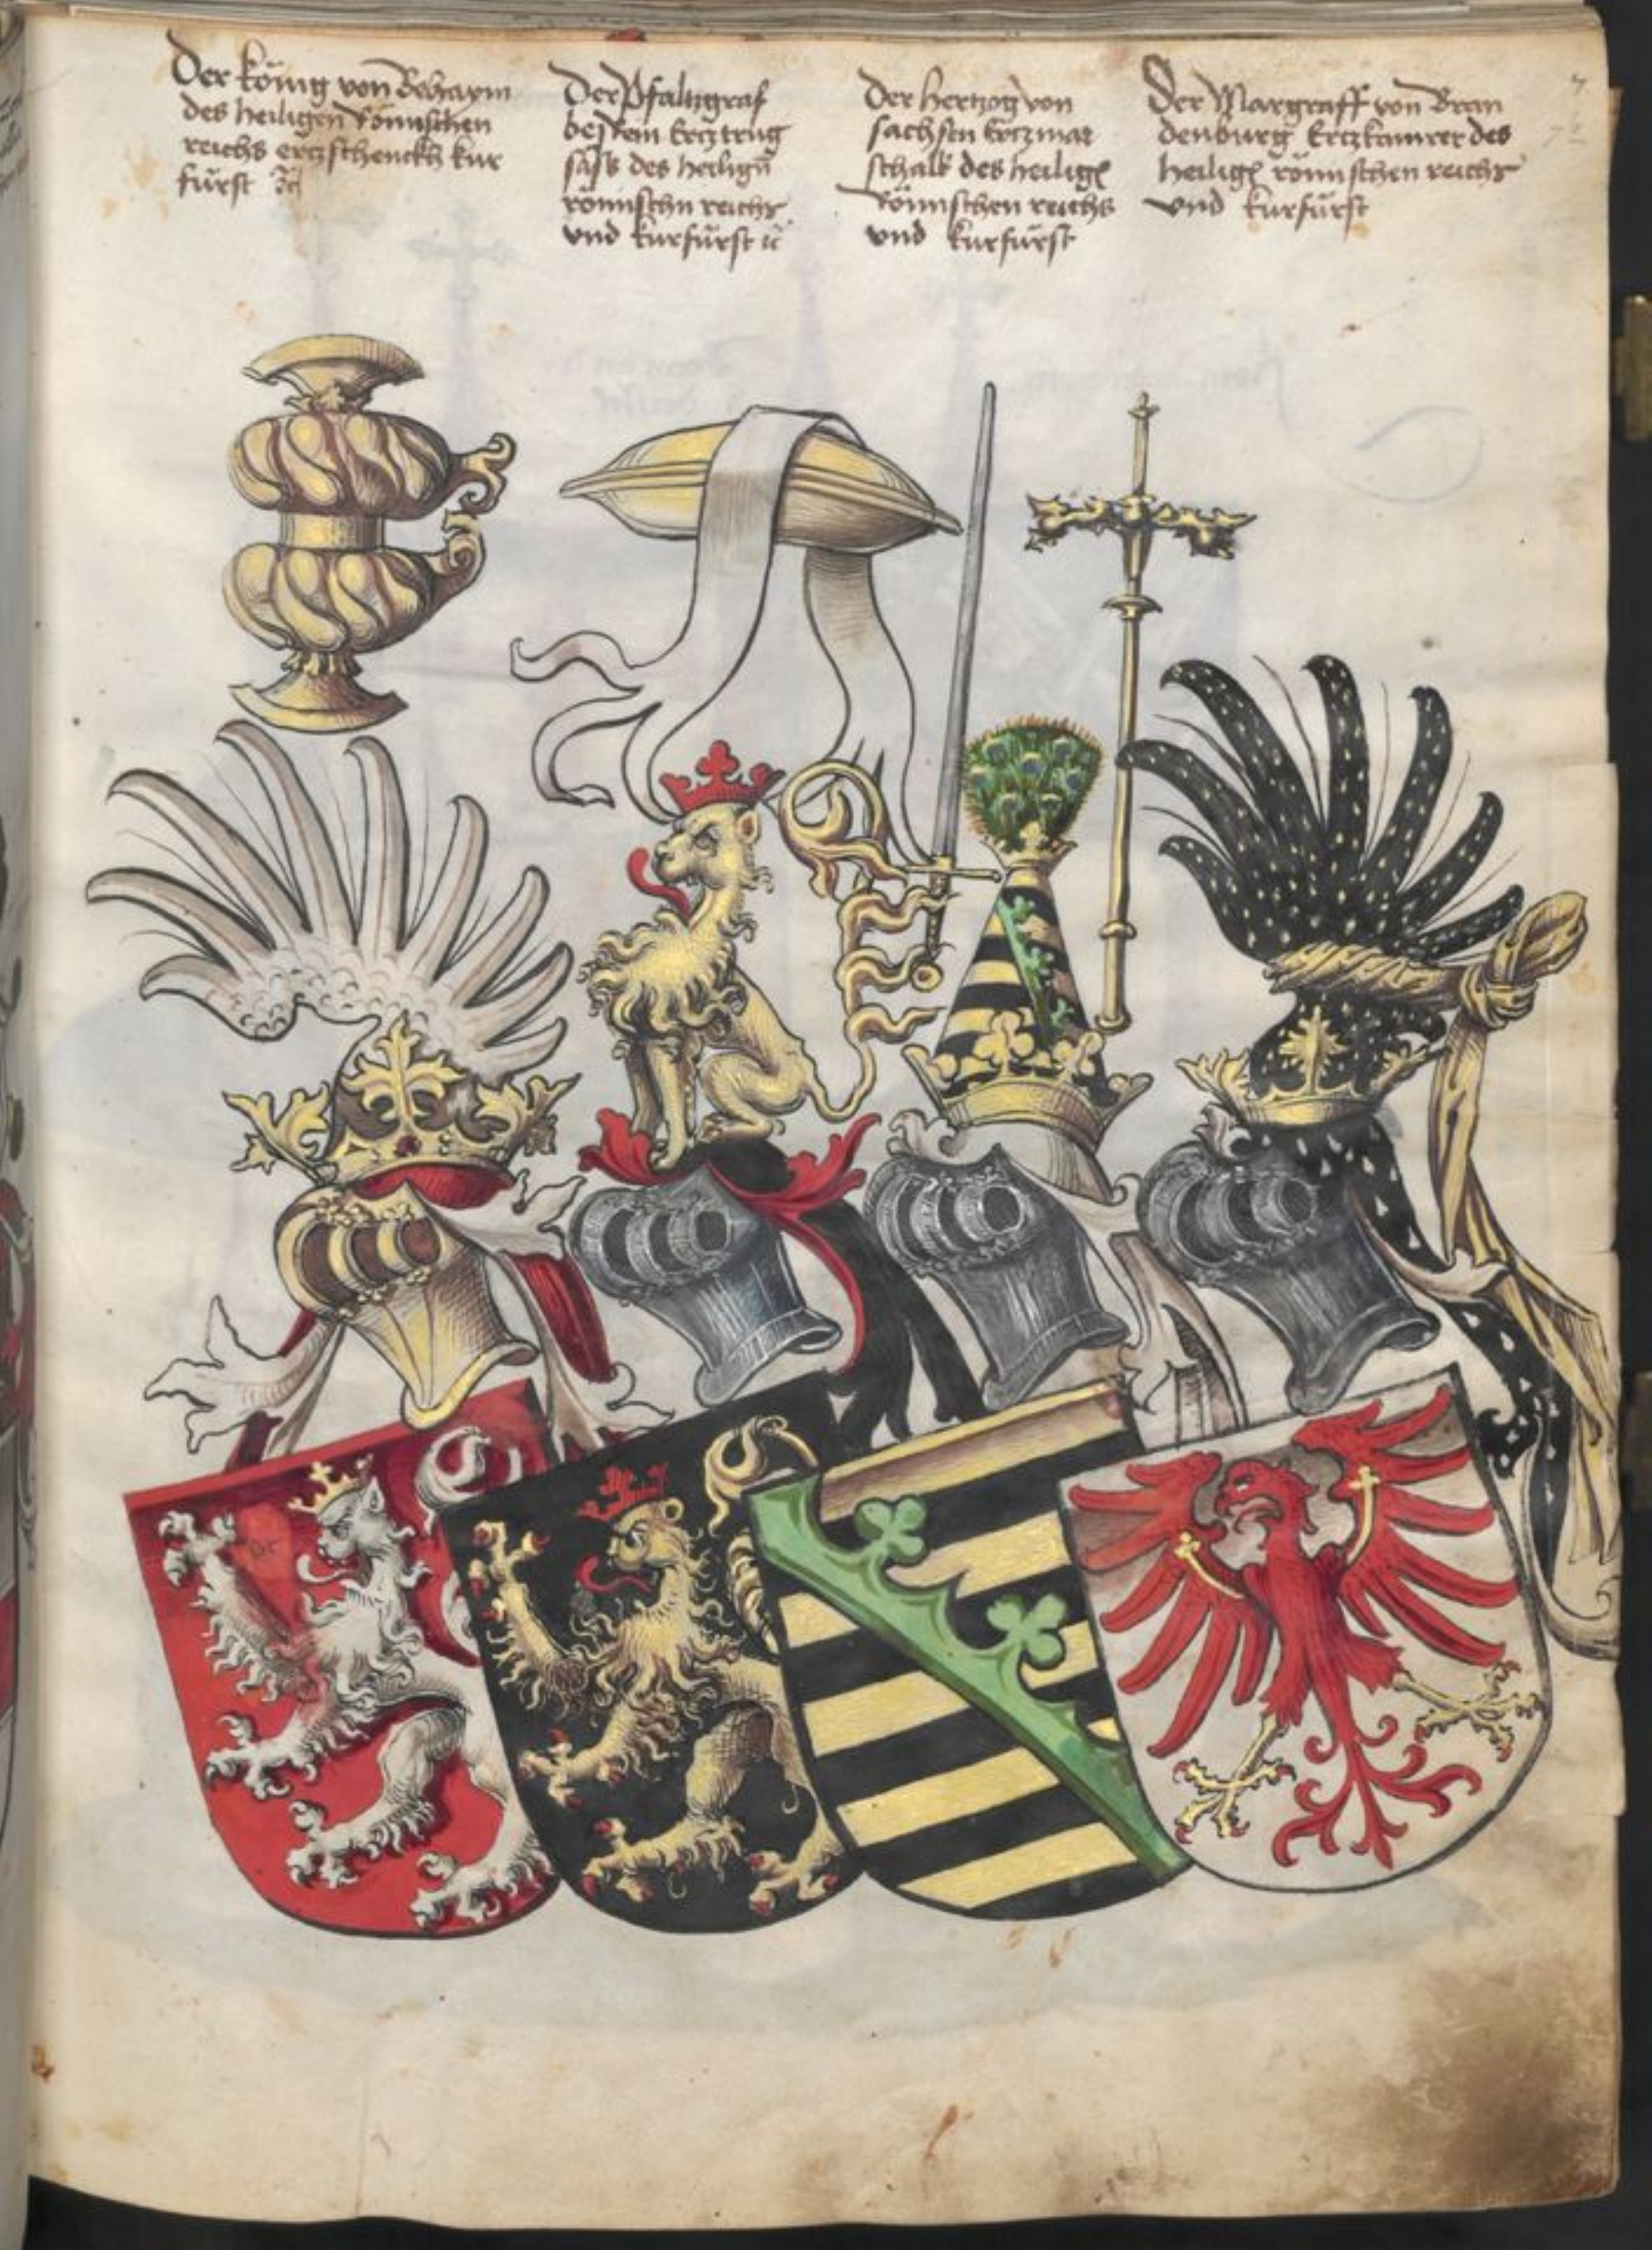 Der König von Behaym
des heiligen Römischen
reichs ertzschenckh kur
fürst
Der Pfaltzgraf
bej Rein Ertztrug
säss des heilign
römischn reichs
vnd kurfürst
Der hertzog von
sachsen Ertzmar
schalk des heilign
Römischen reichs
vnd kurfürst
Der Margraff von Bran
denburg Ertzkamrer des
heilign römischen reichs
vnd kurfürst
7